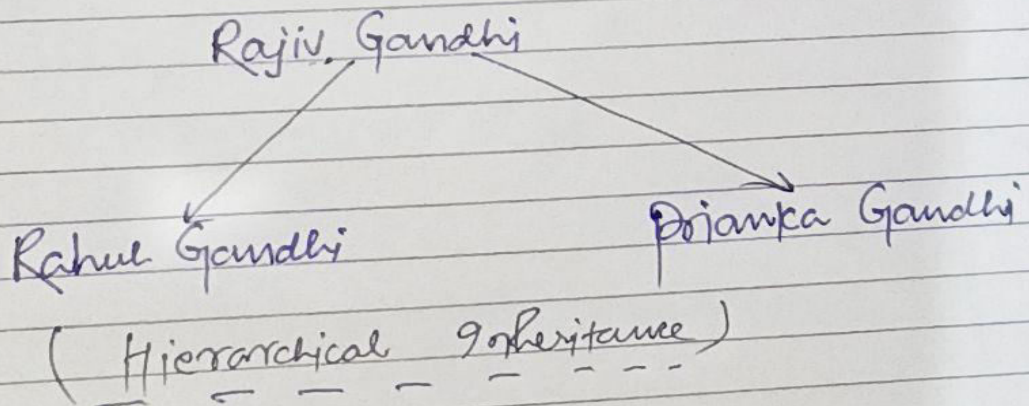 Rajiv. Gandhi
Rahul Gandhi Prianka Gandhi
(Hierarchical Inheritance)